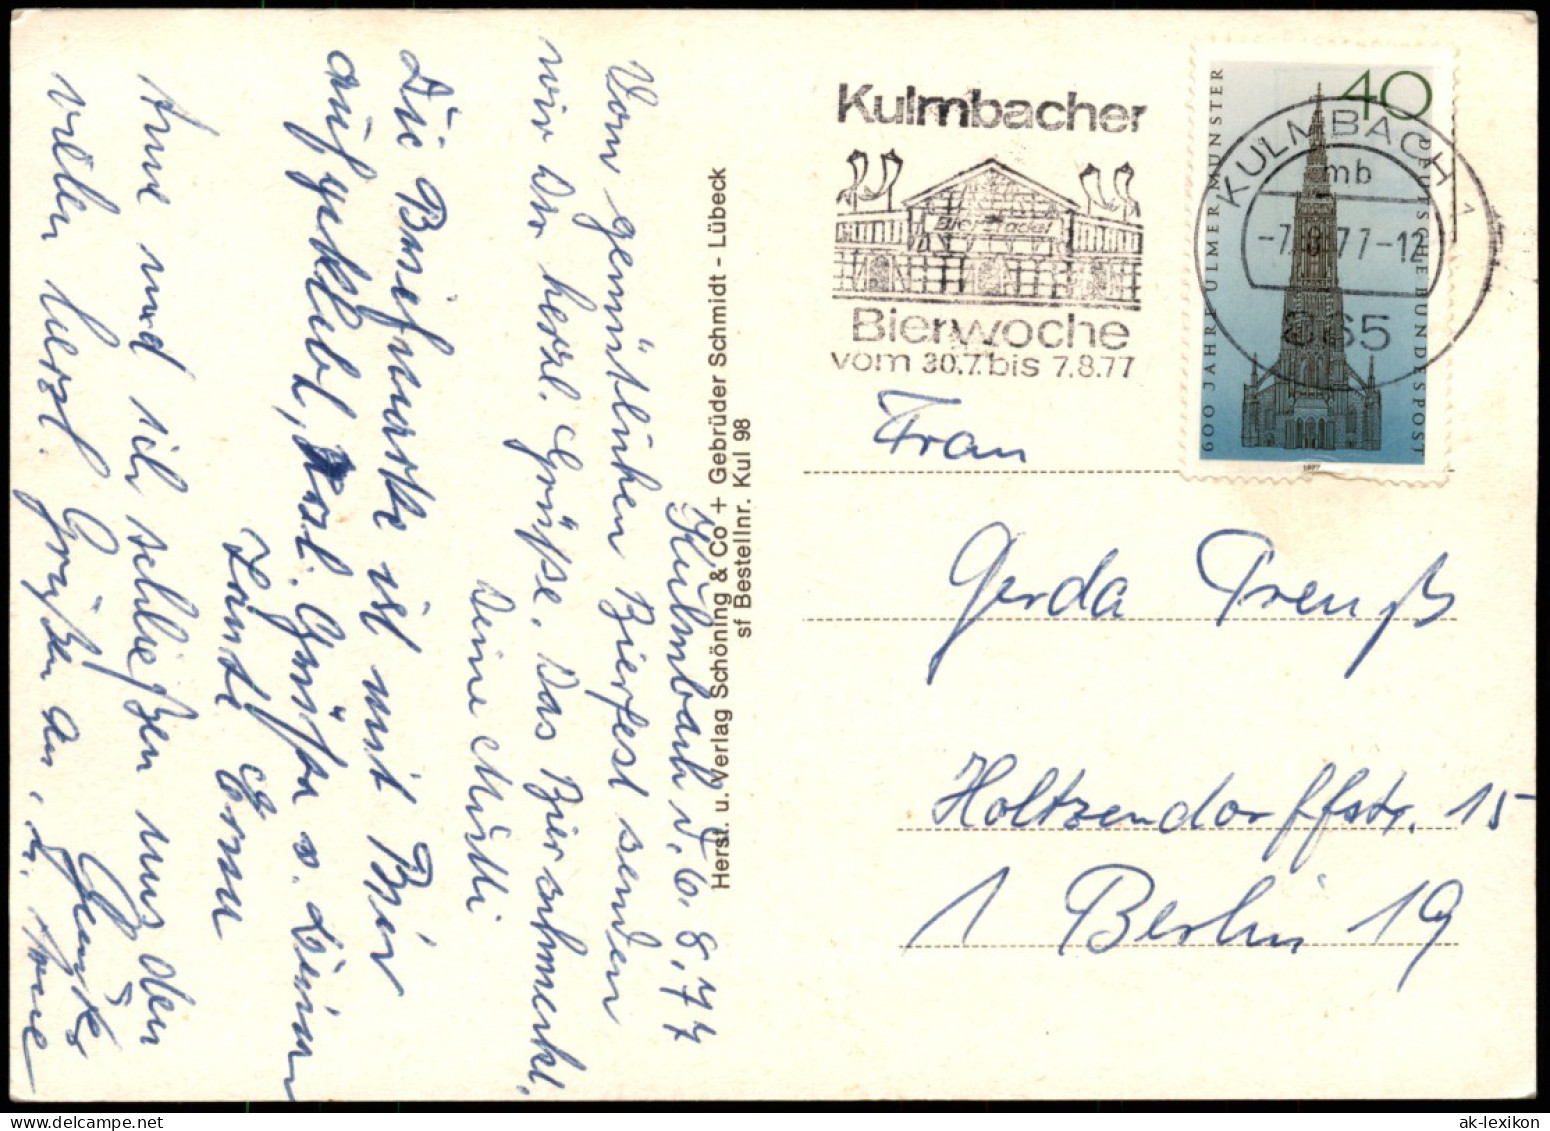 Kulmbach d. 6.8.77
Vom gemütlichen Bierfest senden
wir Dir herzl. Grüsse. Das Bier schmeckt.
Deine Mutti
Die Briefmarke ist mit Bier
aufgeklebt, herzl. Grüße v. Deiner
Tante Erna
Anne und ich schließen uns den
vielen herzl. Grüßen an,
Anne
Herst. u. Verlag Schöning & Co + Gebrüder Schmidt - Lübeck
sf Bestellnr. Kul 98
Kulmbacher
Bierstadel
Bierwoche
vom 30.7. bis 7.8.77
40
600 JAHRE ULMER MÜNSTER
DEUTSCHE BUNDESPOST
1977
KULMBACH 1
mb
-7.8.77-12
865
Frau
Gerda Preuß
Holtzendorffstr. 15
1 Berlin 19
ak-lexikon